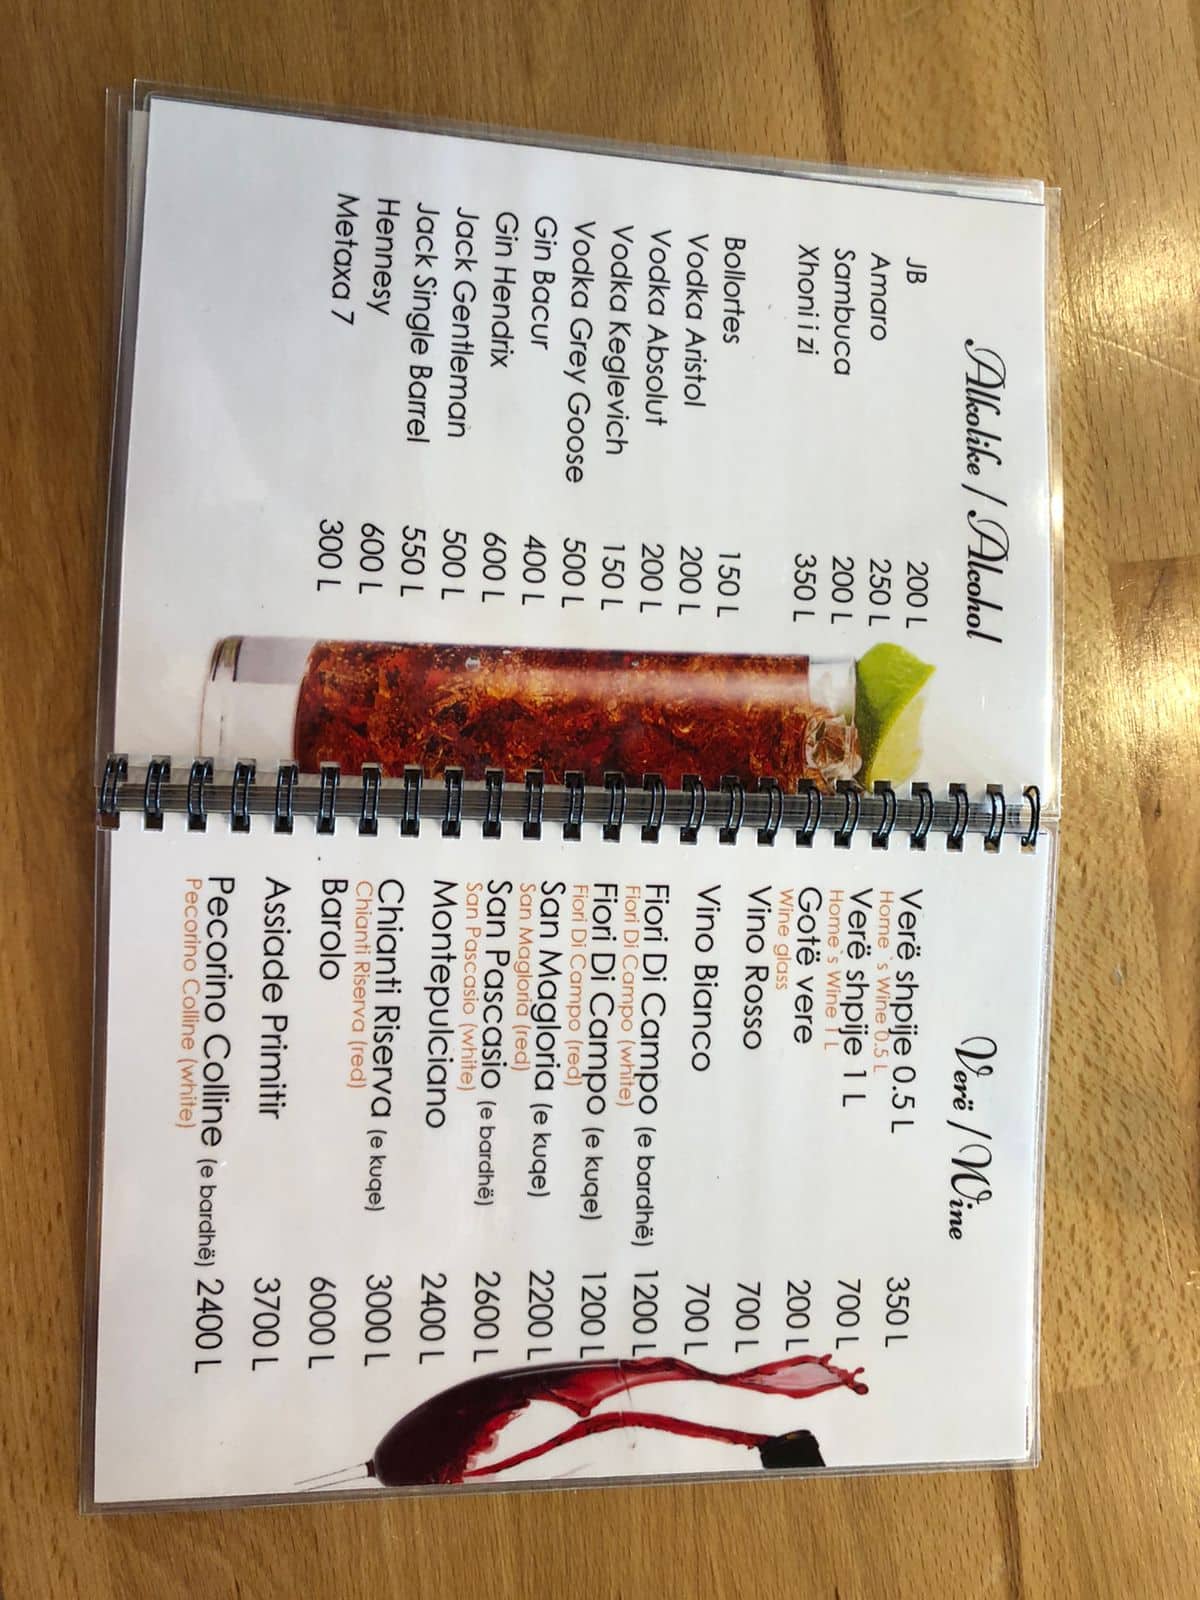 Alkolike / Alcohol
JB 200 L
Amaro 250 L
Sambuca 200 L
Xhoni i zi 350 L
Bollortes 150 L
Vodka Aristol 200 L
Vodka Absolut 200 L
Vodka Keglevich 150 L
Vodka Grey Goose 500 L
Gin Bacur 400 L
Gin Hendrix 600 L
Jack Gentleman 500 L
Jack Single Barrel 550 L
Hennesy 600 L
Metaxa 7 300 L
Verë / Wine
Verë shpije 0.5 L 350 L
Home`s Wine 0.5 L
Verë shpije 1 L 700 L
Home`s Wine 1 L
Gotë vere 200 L
Wine glass
Vino Rosso 700 L
Vino Bianco 700 L
Fiori Di Campo (e bardhë) 1200 L
Fiori Di Campo (white)
Fiori Di Campo (e kuqe) 1200 L
Fiori Di Campo (red)
San Magloria (e kuqe) 2200 L
San Magloria (red)
San Pascasio (e bardhë) 2600 L
San Pascasio (white)
Montepulciano 2400 L
Chianti Riserva (e kuqe) 3000 L
Chianti Riserva (red)
Barolo 6000 L
Assiade Primitir 3700 L
Pecorino Colline (e bardhë) 2400 L
Pecorino Colline (white)